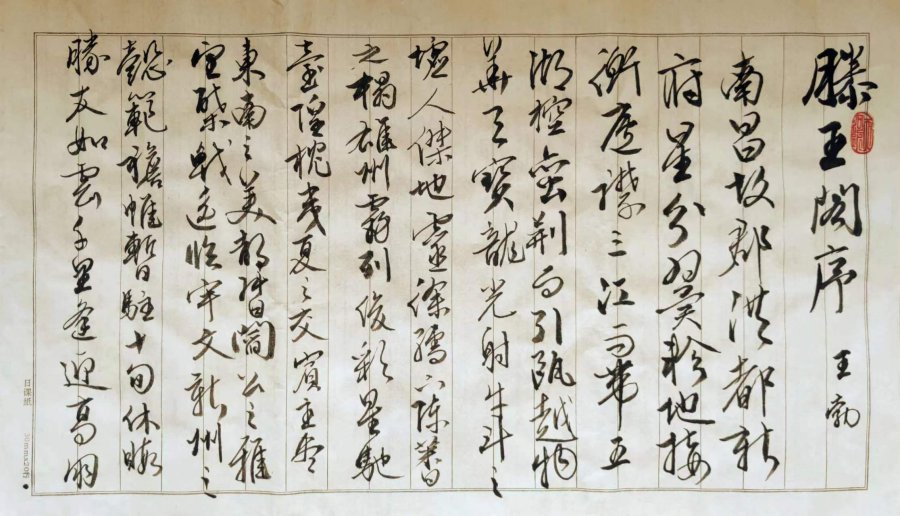 滕王閣序 王勃
南昌故郡洪都新
府星分翼軫地接
衡廬襟三江而帶五
湖控蠻荊而引甌越物
華天寶龍光射牛斗之
墟人傑地靈徐孺下陳蕃
之榻雄州霧列俊彩星馳
臺隍枕夷夏之交賓主盡
東南之美都督閻公之雅
望棨戟遙臨宇文新州之
懿範襜帷暫駐十旬休暇
勝友如雲千里逢迎高朋
日课纸